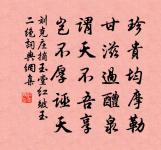 珍貴均摩勒
甘滋過醴泉
謂天不吾享
豈不厚誣天
劉克庄摘玉堂紅皱玉
二絕詞典網集